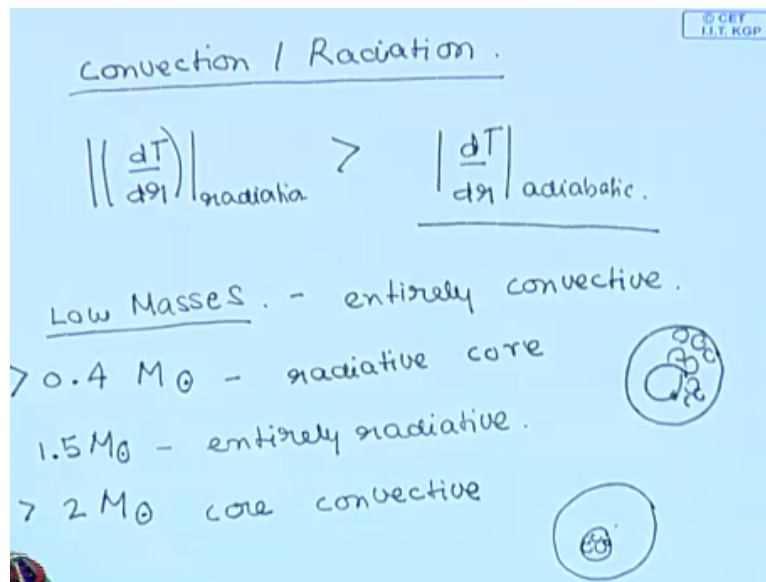 © CET
I.I.T. KGP
Convection / Raciation.
|(dT/dr)|radiatia > |dT/dr|adiabatic.
Low Masses. - entirely convective.
> 0.4 M⊙ - radiative core
1.5 M⊙ - entirely radiative.
> 2 M⊙ core convective